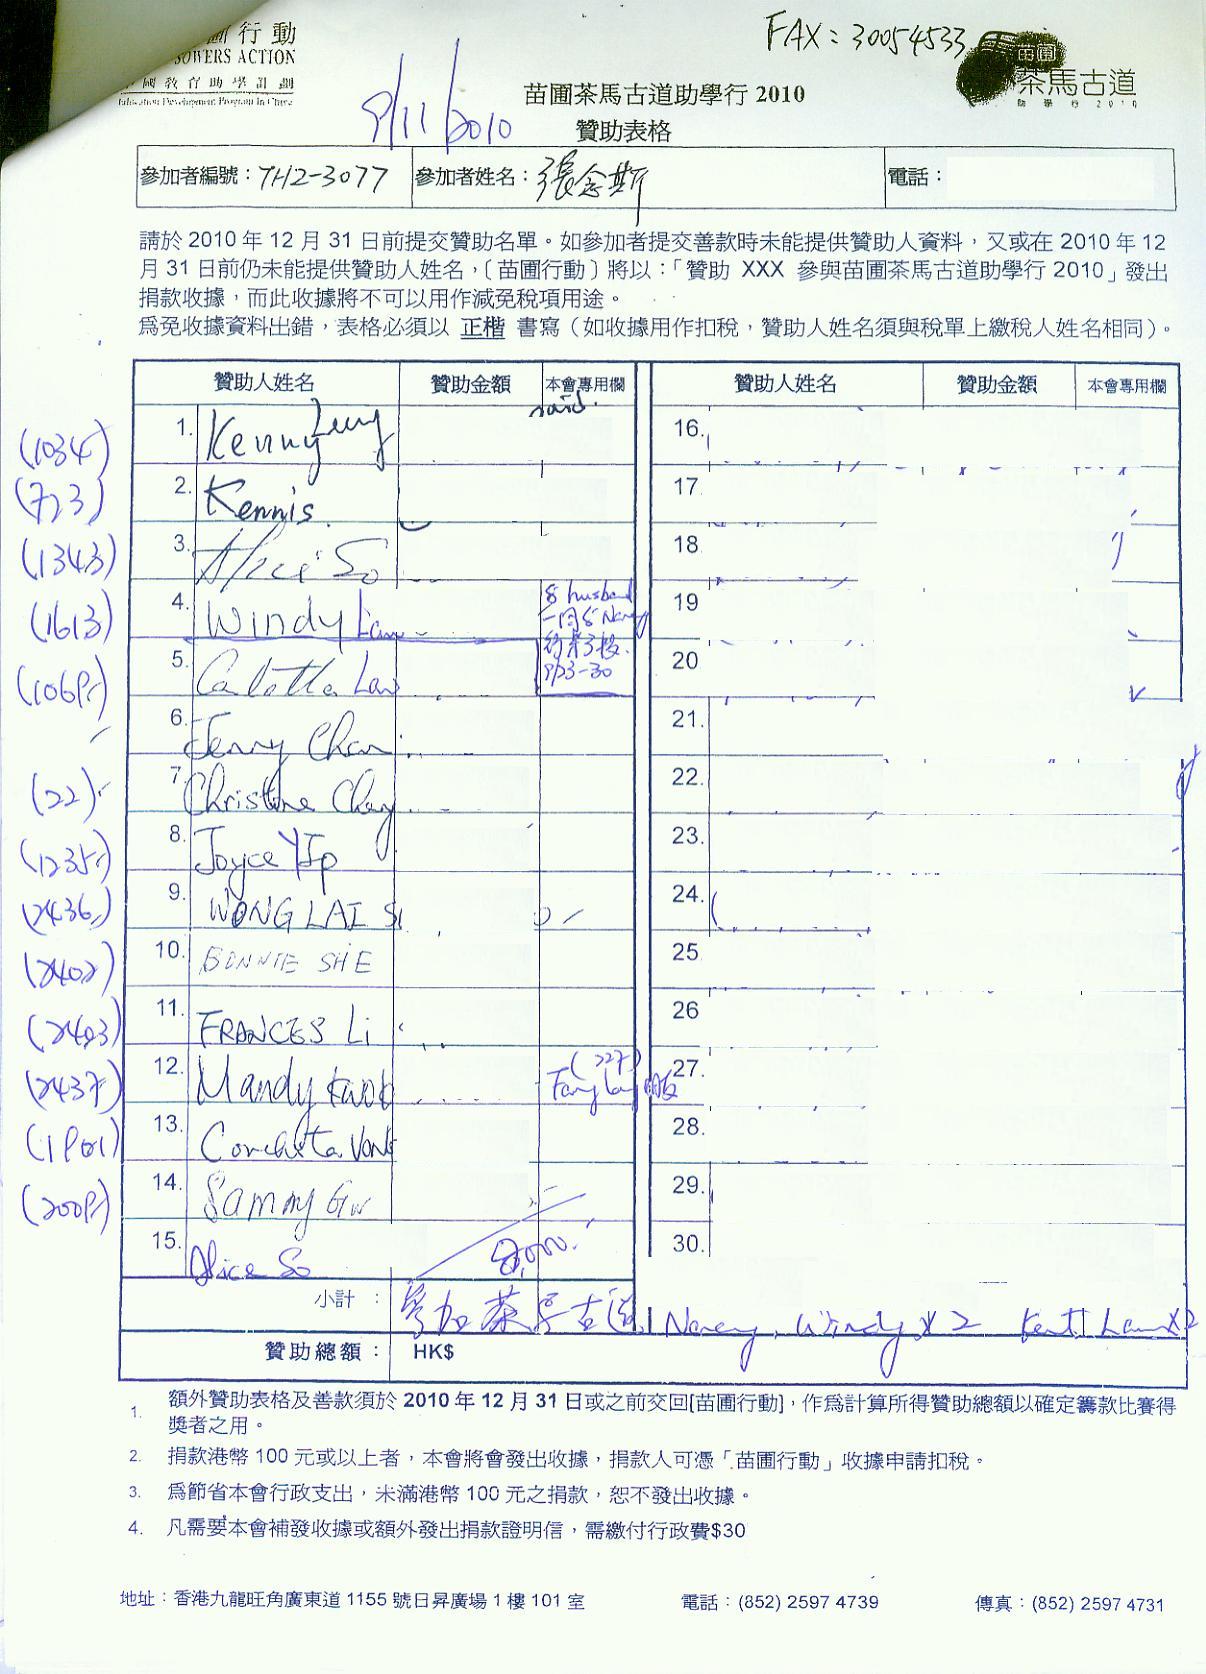 行動
SOWERS ACTION
國教育助學計劃
Education Development Program in China
FAX: 30054533
苗圃
茶馬古道
助學行2010
9/11/2010
苗圃茶馬古道助學行 2010
贊助表格
參加者編號：TH2-3077 參加者姓名：張念斯 電話：
請於 2010 年 12 月 31 日前提交贊助名單。如參加者提交善款時未能提供贊助人資料，又或在 2010 年 12
月 31 日前仍未能提供贊助人姓名，〔苗圃行動〕將以：「贊助 XXX 參與苗圃茶馬古道助學行 2010」發出
捐款收據，而此收據將不可以用作減免稅項用途。
為免收據資料出錯，表格必須以 正楷 書寫（如收據用作扣稅，贊助人姓名須與稅單上繳稅人姓名相同）。
贊助人姓名 贊助金額 本會專用欄 贊助人姓名 贊助金額 本會專用欄
(1034) 1. Kenny Leung 16.
(723) 2. Kennis 17.
(1343) 3. Alice So 18.
(1613) 4. Windy Lam & husband 19
5. Calotta Law 20
6. Jenny Chan 21.
(22) 7. Christine Chung 22.
(1235) 8. Joyce Yip 23.
(2436) 9. WONG LAI SI 24.
(2402) 10. BONNIE SHE 25.
(2403) 11. FRANCES Li 26
(2437) 12. Mandy Kwok (227) 27.
(1901) 13. Conchita Vong 28.
14. Sammy 29.
15. Alice So 30.
小計 ： 參加茶馬古道 Nancy, Windy x 2 Lam x2
贊助總額： HK$
1. 額外贊助表格及善款須於 2010 年 12 月 31 日或之前交回[苗圃行動]，作為計算所得贊助總額以確定籌款比賽得
獎者之用。
2. 捐款港幣 100 元或以上者，本會將會發出收據，捐款人可憑「苗圃行動」收據申請扣稅。
3. 為節省本會行政支出，未滿港幣 100 元之捐款，恕不發出收據。
4. 凡需要本會補發收據或額外發出捐款證明信，需繳付行政費$30
地址：香港九龍旺角廣東道 1155 號日昇廣場 1 樓 101 室 電話：(852) 2597 4739 傳真：(852) 2597 4731